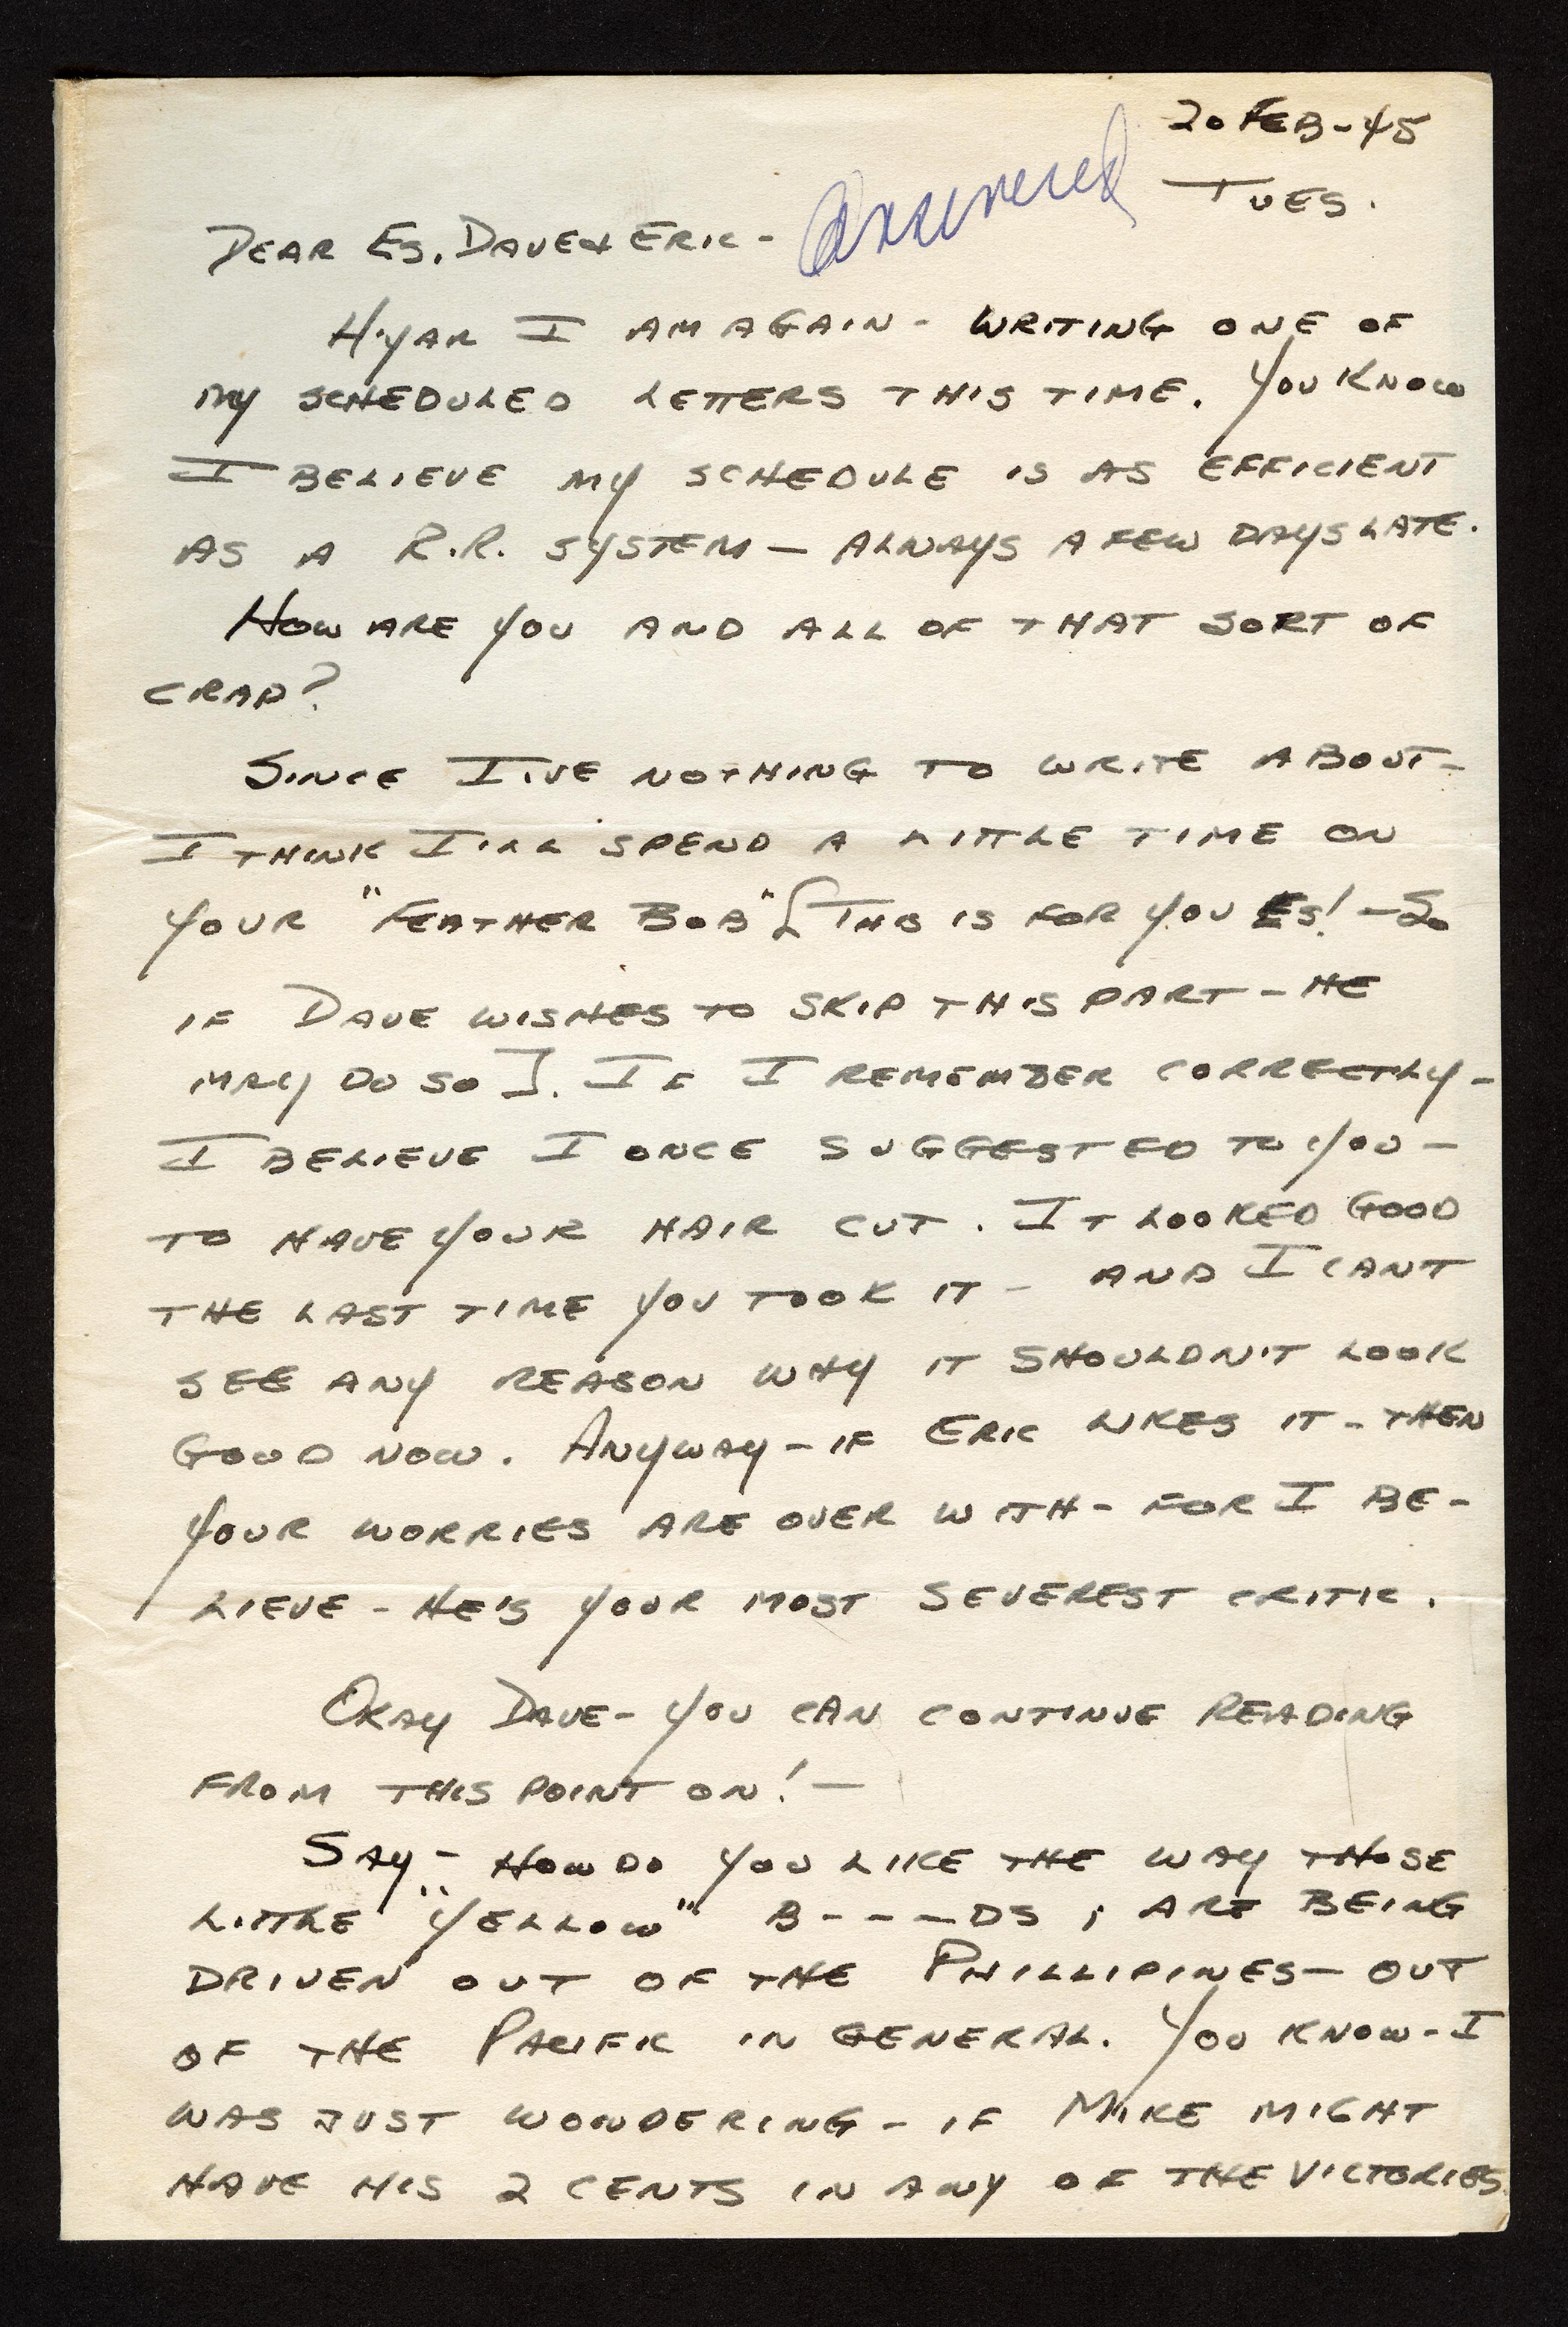 20 FEB-45
Answered
TUES.
DEAR ES, DAVE & ERIC-
H'YAR I AM AGAIN - WRITING ONE OF
MY SCHEDULED LETTERS THIS TIME. YOU KNOW
I BELIEVE MY SCHEDULE IS AS EFFICIENT
AS A R.R. SYSTEM - ALWAYS A FEW DAYS LATE.
HOW ARE YOU AND ALL OF THAT SORT OF
CRAP?
SINCE I'VE NOTHING TO WRITE ABOUT-
I THINK I'LL SPEND A LITTLE TIME ON
YOUR "FEATHER BOB" [THIS IS FOR YOU ES! - SO
IF DAVE WISHES TO SKIP THIS PART - HE
MAY DO SO]. IF I REMEMBER CORRECTLY -
I BELIEVE I ONCE SUGGESTED TO YOU -
TO HAVE YOUR HAIR CUT. IT LOOKED GOOD
THE LAST TIME YOU TOOK IT - AND I CANT
SEE ANY REASON WHY IT SHOULDN'T LOOK
GOOD NOW. ANYWAY - IF ERIC LIKES IT - THEN
YOUR WORRIES ARE OVER WITH - FOR I BE-
LIEVE - HE'S YOUR MOST SEVEREST CRITIC.
OKAY DAVE - YOU CAN CONTINUE READING
FROM THIS POINT ON! -
SAY - HOW DO YOU LIKE THE WAY THOSE
LITTLE "YELLOW" B----DS, ARE BEING
DRIVEN OUT OF THE PHILLIPINES - OUT
OF THE PACIFIC IN GENERAL. YOU KNOW - I
WAS JUST WONDERING - IF MIKE MIGHT
HAVE HIS 2 CENTS IN ANY OF THE VICTORIES.